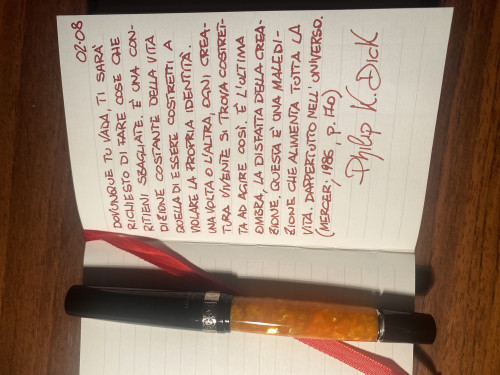 02-08
DOVUNQUE TU VADA, TI SARÀ
RICHIESTO DI FARE COSE CHE
RITIENI SBAGLIATE. È UNA CON-
DIZIONE COSTANTE DELLA VITA
QUELLA DI ESSERE COSTRETTI A
VIOLARE LA PROPRIA IDENTITÀ.
UNA VOLTA O L'ALTRA, OGNI CREA-
TURA VIVENTE SI TROVA COSTRET-
TA AD AGIRE COSÌ. È L'ULTIMA
OMBRA, LA DISFATTA DELLA CREA-
ZIONE, QUESTA È UNA MALEDI-
ZIONE CHE ALIMENTA TUTTA LA
VITA. DAPPERTUTTO NELL'UNIVERSO.
(MERCER; 1986, P. 170)
Philip K. Dick